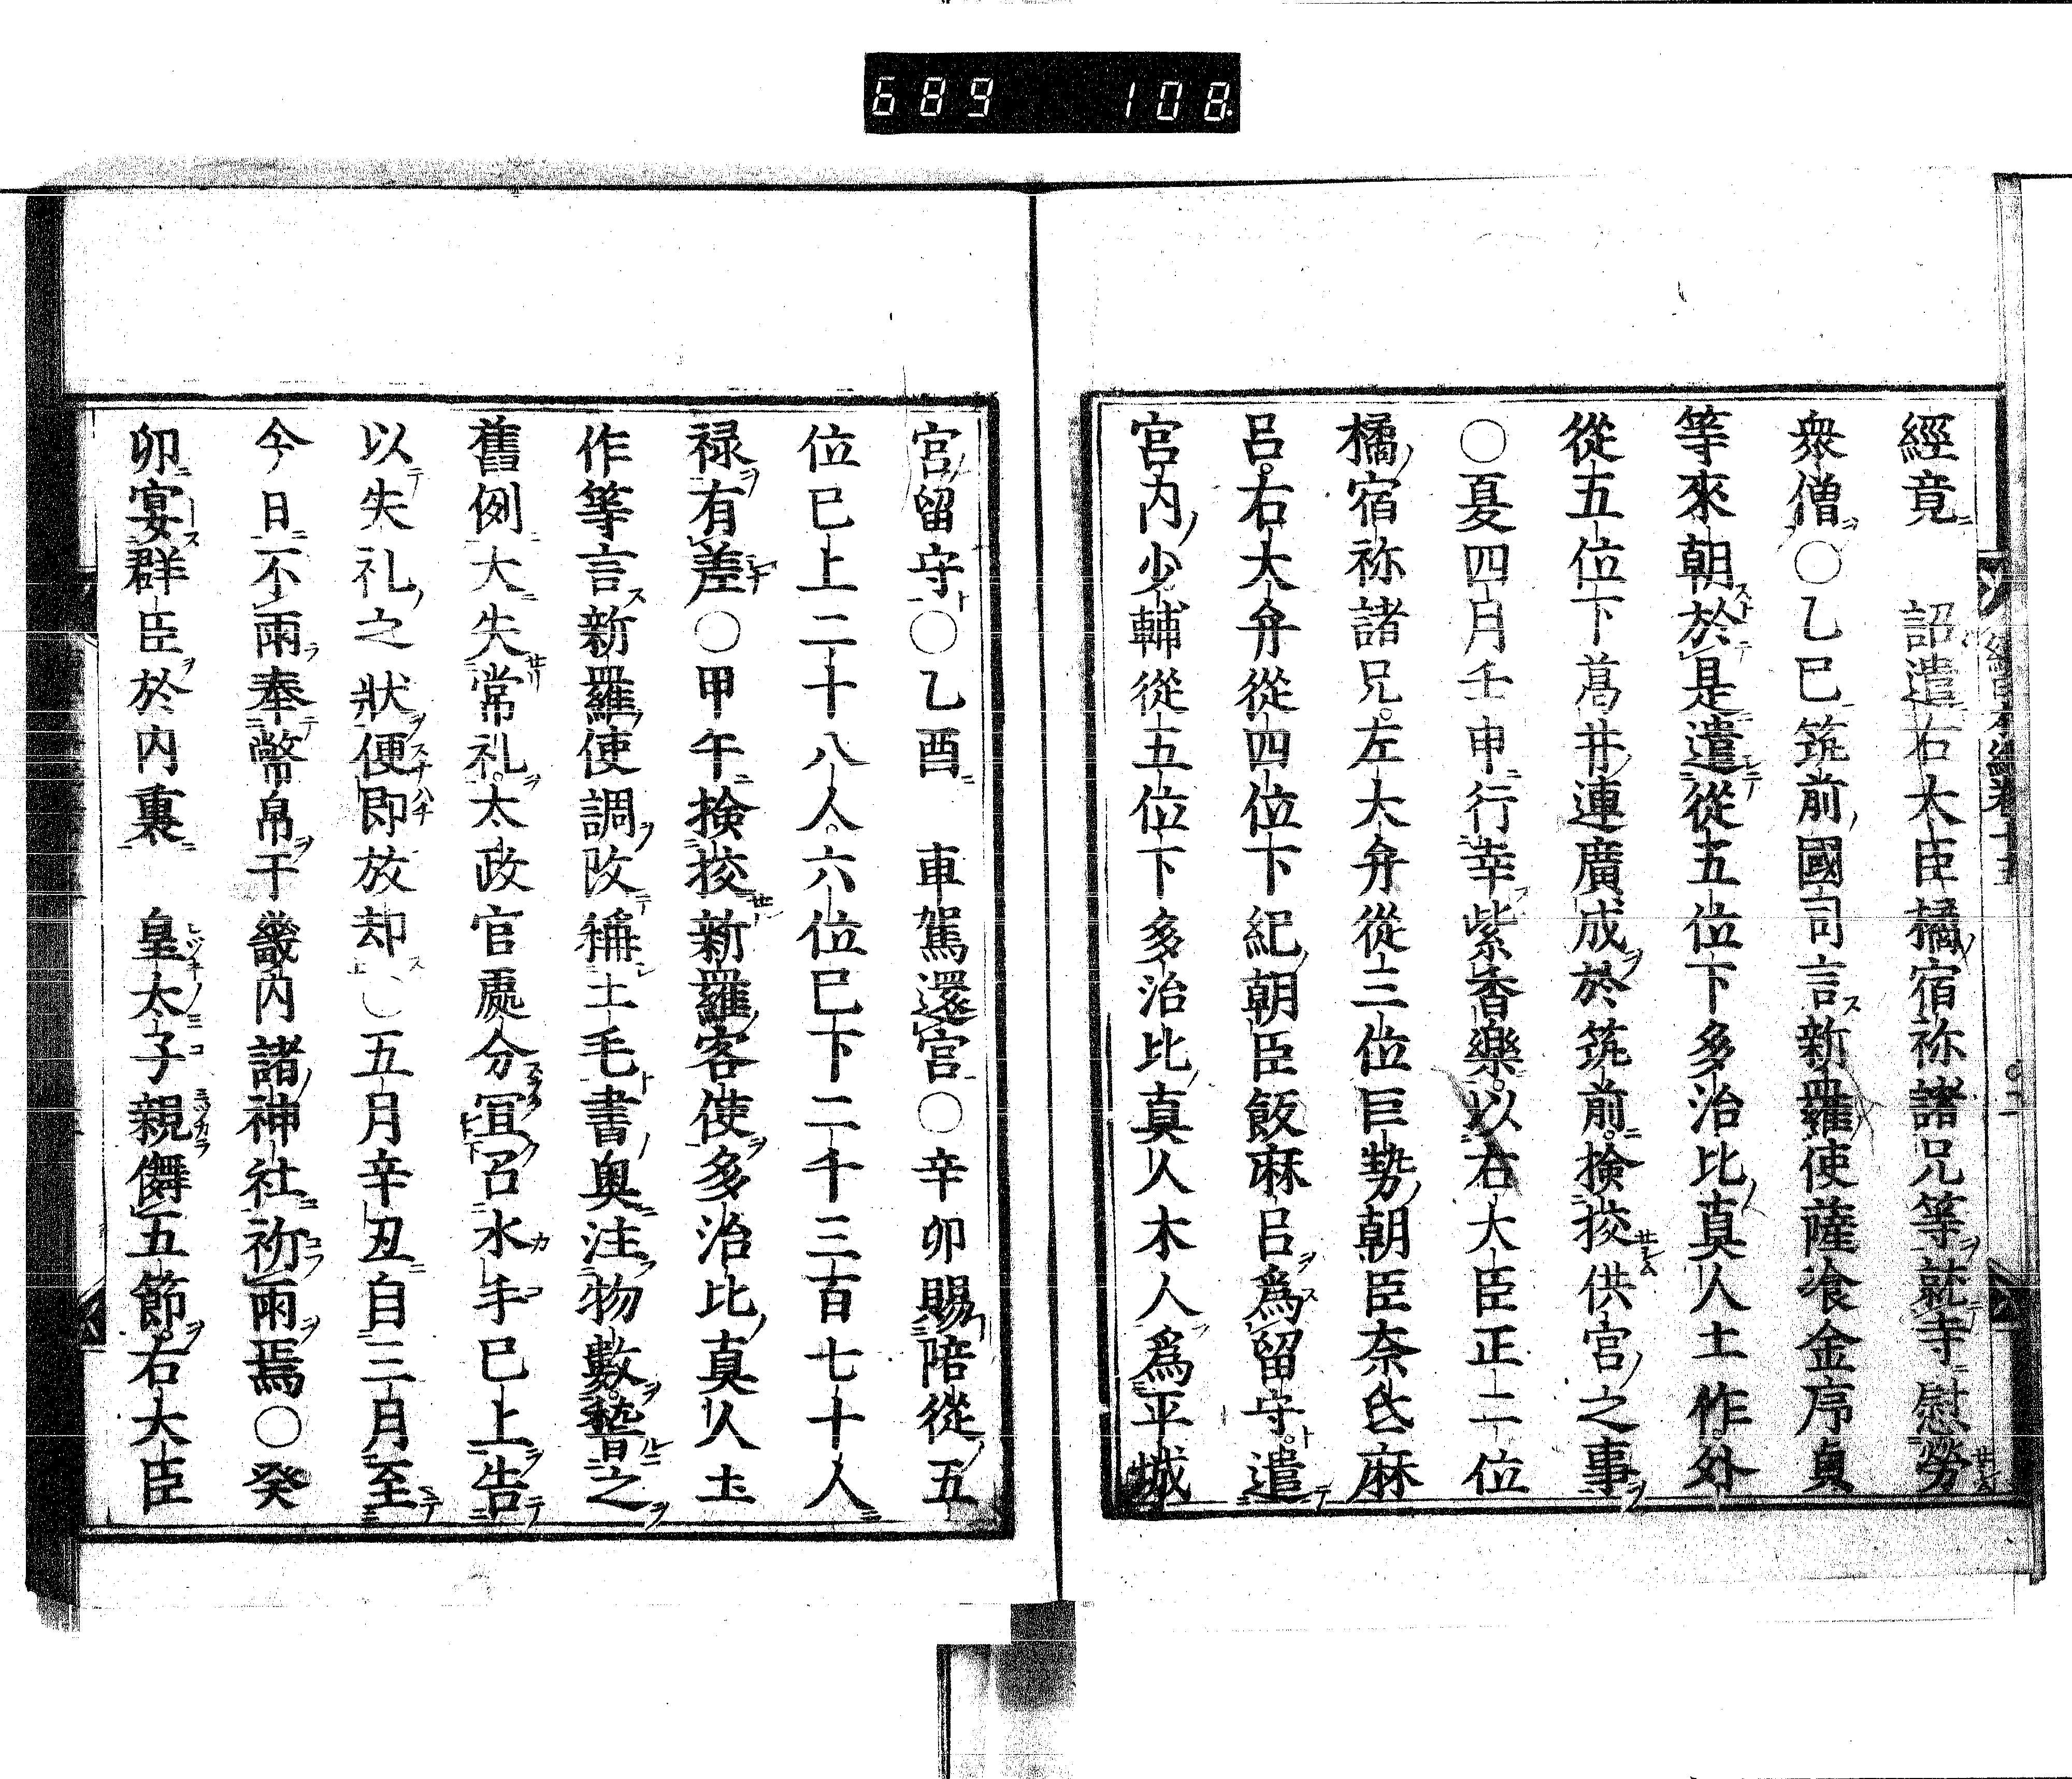 689 108
經竟　詔遣右大臣橘宿祢諸兄等就寺慰勞
衆僧○乙巳筑前國司言新羅使薩飡金序貞
等來朝於是遣從五位下多治比真人土作外
從五位下葛井連廣成於筑前檢挍供宮之事
○夏四月壬申行幸紫香樂以右大臣正二位
橘宿祢諸兄左大弁從三位巨勢朝臣奈氐麻
呂右大弁從四位下紀朝臣飯麻呂爲留守遣
宮内少輔從五位下多治比真人木人爲平城
宮留守○乙酉　車駕還宮○辛卯賜陪從五
位已上二十八人六位已下二千三百七十人
禄有差○甲午検挍新羅客使多治比真人土
作等言新羅使調改稱土毛書奥注物數稽之
舊例大失常礼太政官處分宜召水手已上告
以失礼之狀便即放却○五月辛丑自三月至
今日不雨奉幣帛于畿内諸神社祈雨焉○癸
卯宴群臣於内裏　皇太子親儛五節右大臣